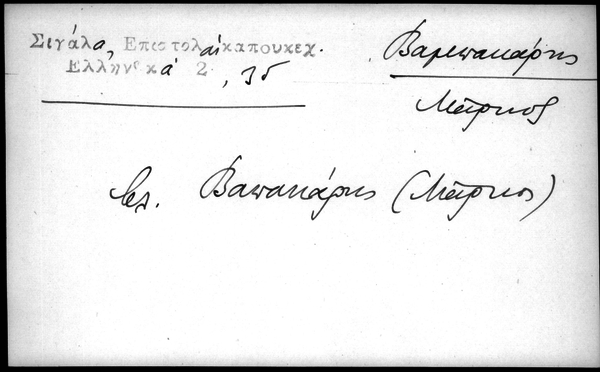 Σιγάλα, Επιστολαί καπουκεχ.
Ελληνικά 2, 35
Βαμπακάρης
Μάρκος
βλ. Βαπακάρης (Μάρκος)